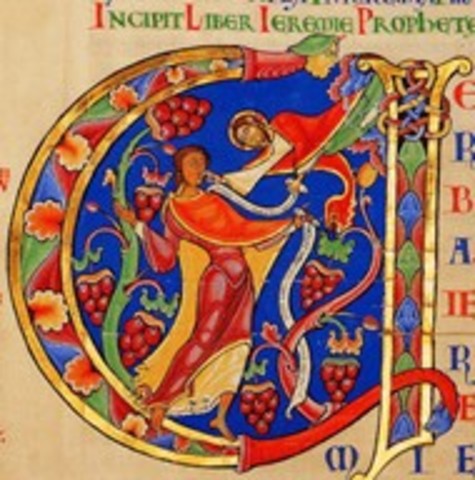 INCIPIT LIBER IEREMIE PROPHETE
E
R
B
A
IE
R
E
M I E